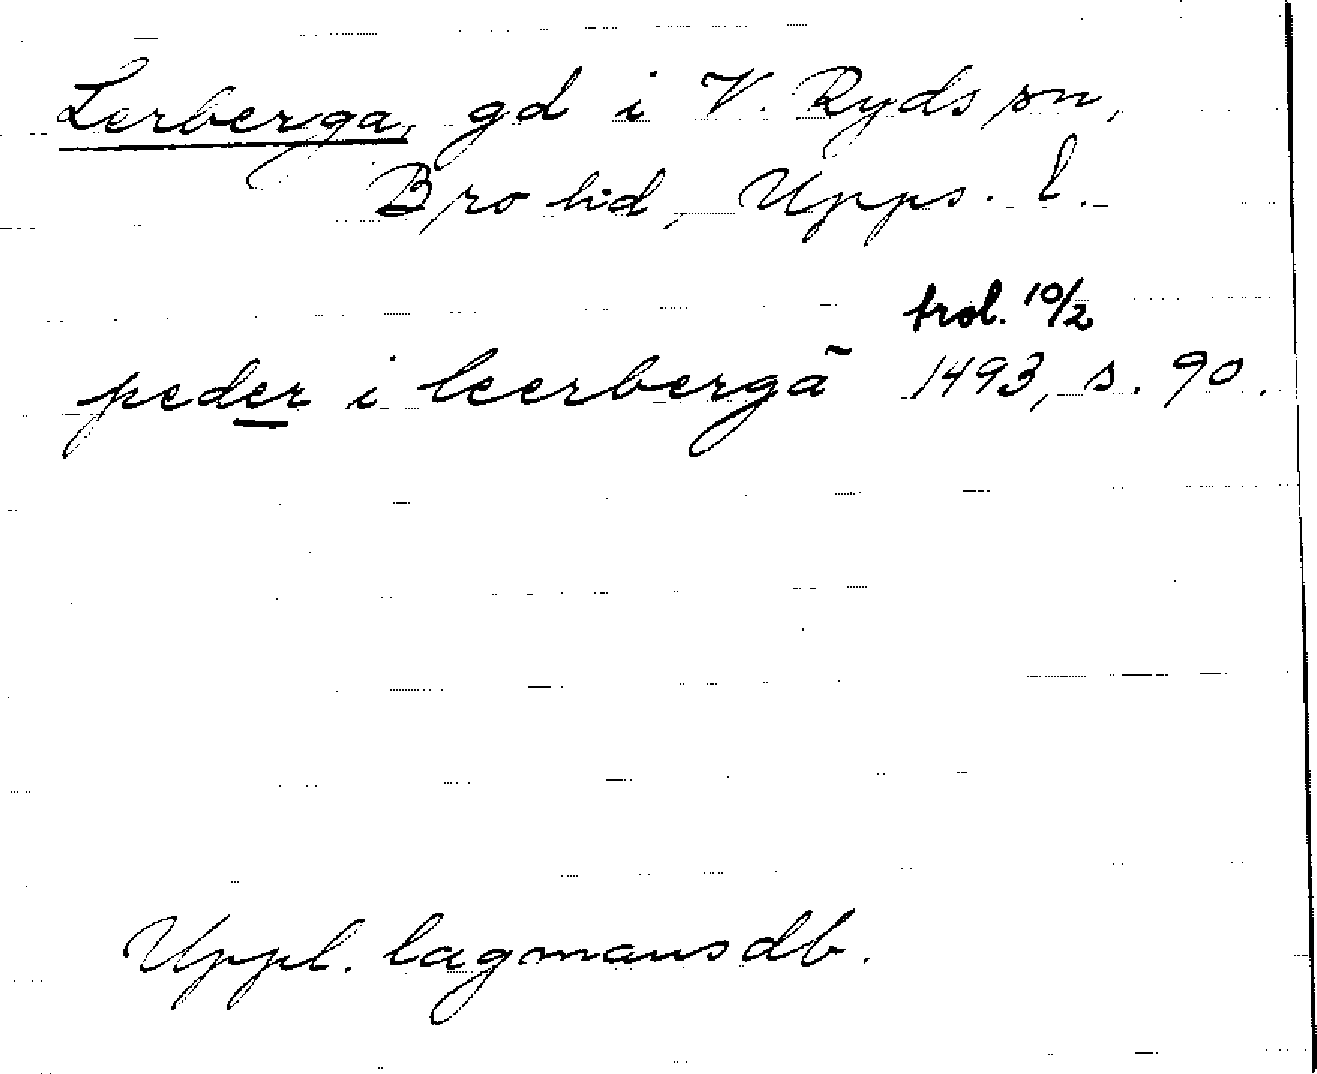 Lerberga, gd i V. Ryds sn,
Bro hd, Upps. l.
trol. 10/2
peder i leerbergā 1493, s. 90.
Uppl. lagmansdb.